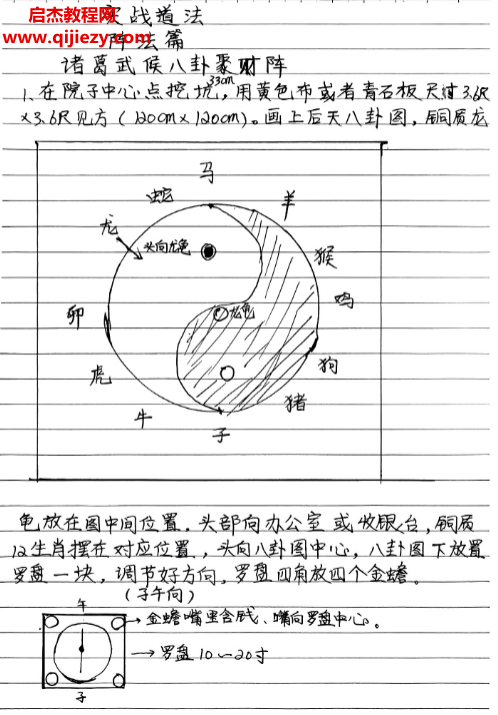 启杰教程网
www.qijiezy.com
实战道法
阵法篇
诸葛武候八卦聚财阵
33cm
1、在院子中心点挖坑，用黄色布或者青石板尺寸3.6尺
×3.6尺见方(120cm×120cm)。画上后天八卦图，铜质龙
马
蛇 羊
龙
头向龙龟
猴
卯
龙龟
鸡
虎
狗
牛
猪
子
龟放在图中间位置，头部向办公室或收银台，铜质
12生肖摆在对应位置，头向八卦图中心，八卦图下放置
罗盘一块，调节好方向，罗盘四角放四个金蟾。
(子午向)
午
→金蟾嘴里含钱、嘴向罗盘中心。
→罗盘10~20寸
子